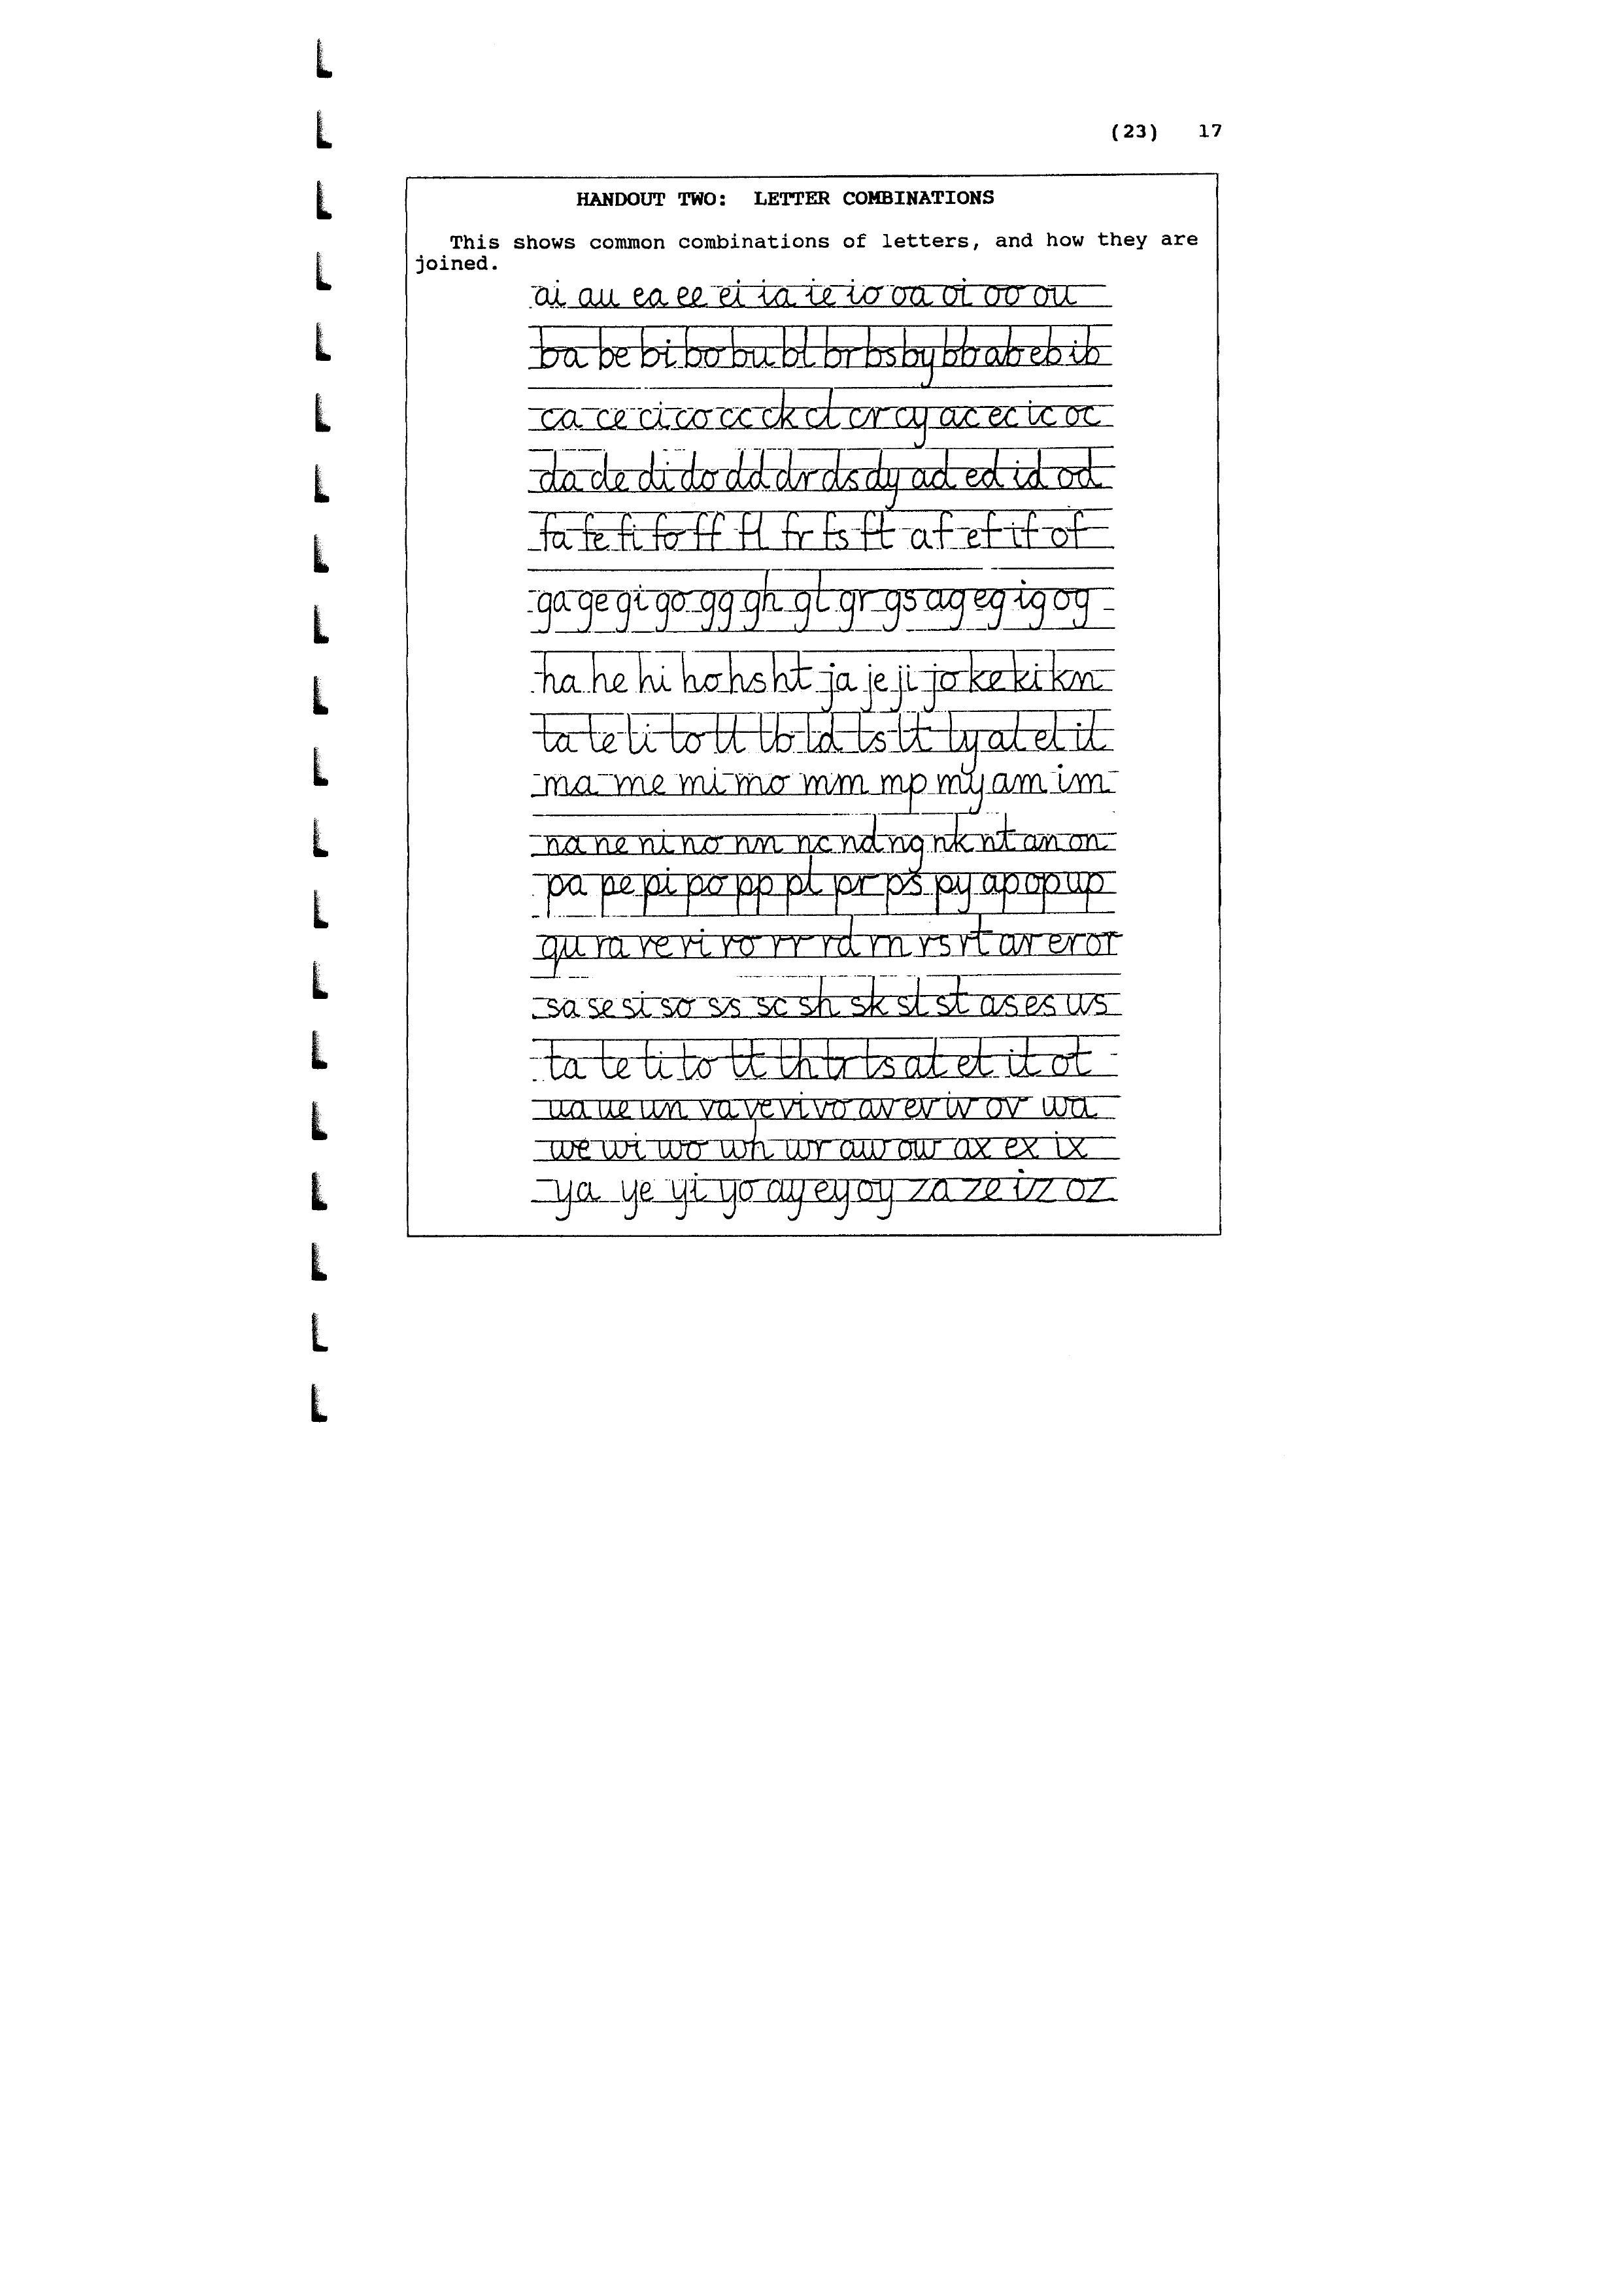 (23) 17
HANDOUT TWO: LETTER COMBINATIONS
This shows common combinations of letters, and how they are
joined.
ai au ea ee ei ia ie io oa oi oo ou
ba be bi bo bu bl br bs by bb ab eb ib
ca ce ci co cc ck cl cr cy ac ec ic oc
da de di do dd dr ds dy ad ed id od
fa fe fi fo ff fl fr fs ft af ef if of
ga ge gi go gg gh gl gr gs ag eg ig og
ha he hi ho hs ht ja je ji jo ke ki kn
la le li lo ll lb ld ls lt ly al el il
ma me mi mo mm mp my am im
na ne ni no nn nc nd ng nk nt an on
pa pe pi po pp pl pr ps py ap op up
qu ra re ri ro rr rd rn rs rt ar er or
sa se si so ss sc sh sk sl st as es us
ta te ti to tt th tr ts at et it ot
ua ue un va ve vi vo av ev iv ov wa
we wi wo wh wr aw ow ax ex ix
ya ye yi yo ay ey oy za ze iz oz